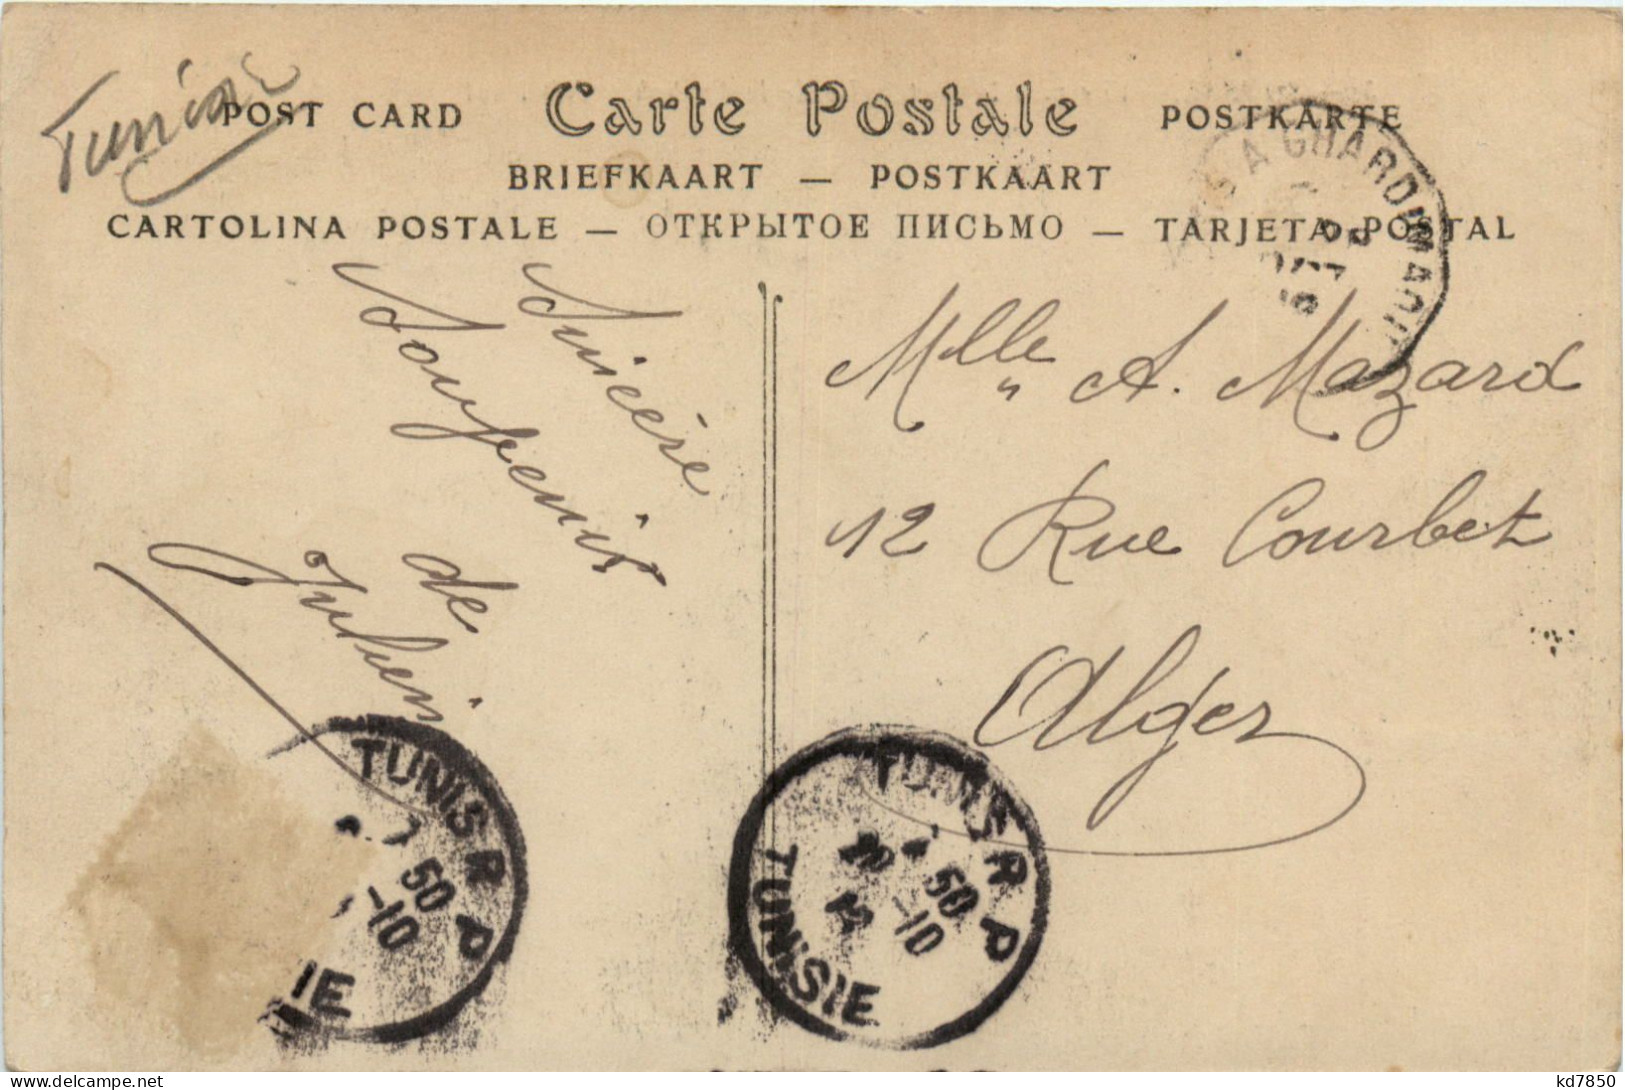 Tunisie
POST CARD Carte Postale POSTKARTE
BRIEFKAART — POSTKAART
CARTOLINA POSTALE — ОТКРЫТОЕ ПИСЬМО — TARJETA POSTAL
Sincère
Souvenir
de
Julien
Mlle A. Mazard
12 Rue Courbet
Alger
A GHARDIMAOU
TUNIS R P
50
-10
IE
TUNIS R P
50
-10
TUNISIE
kd7850